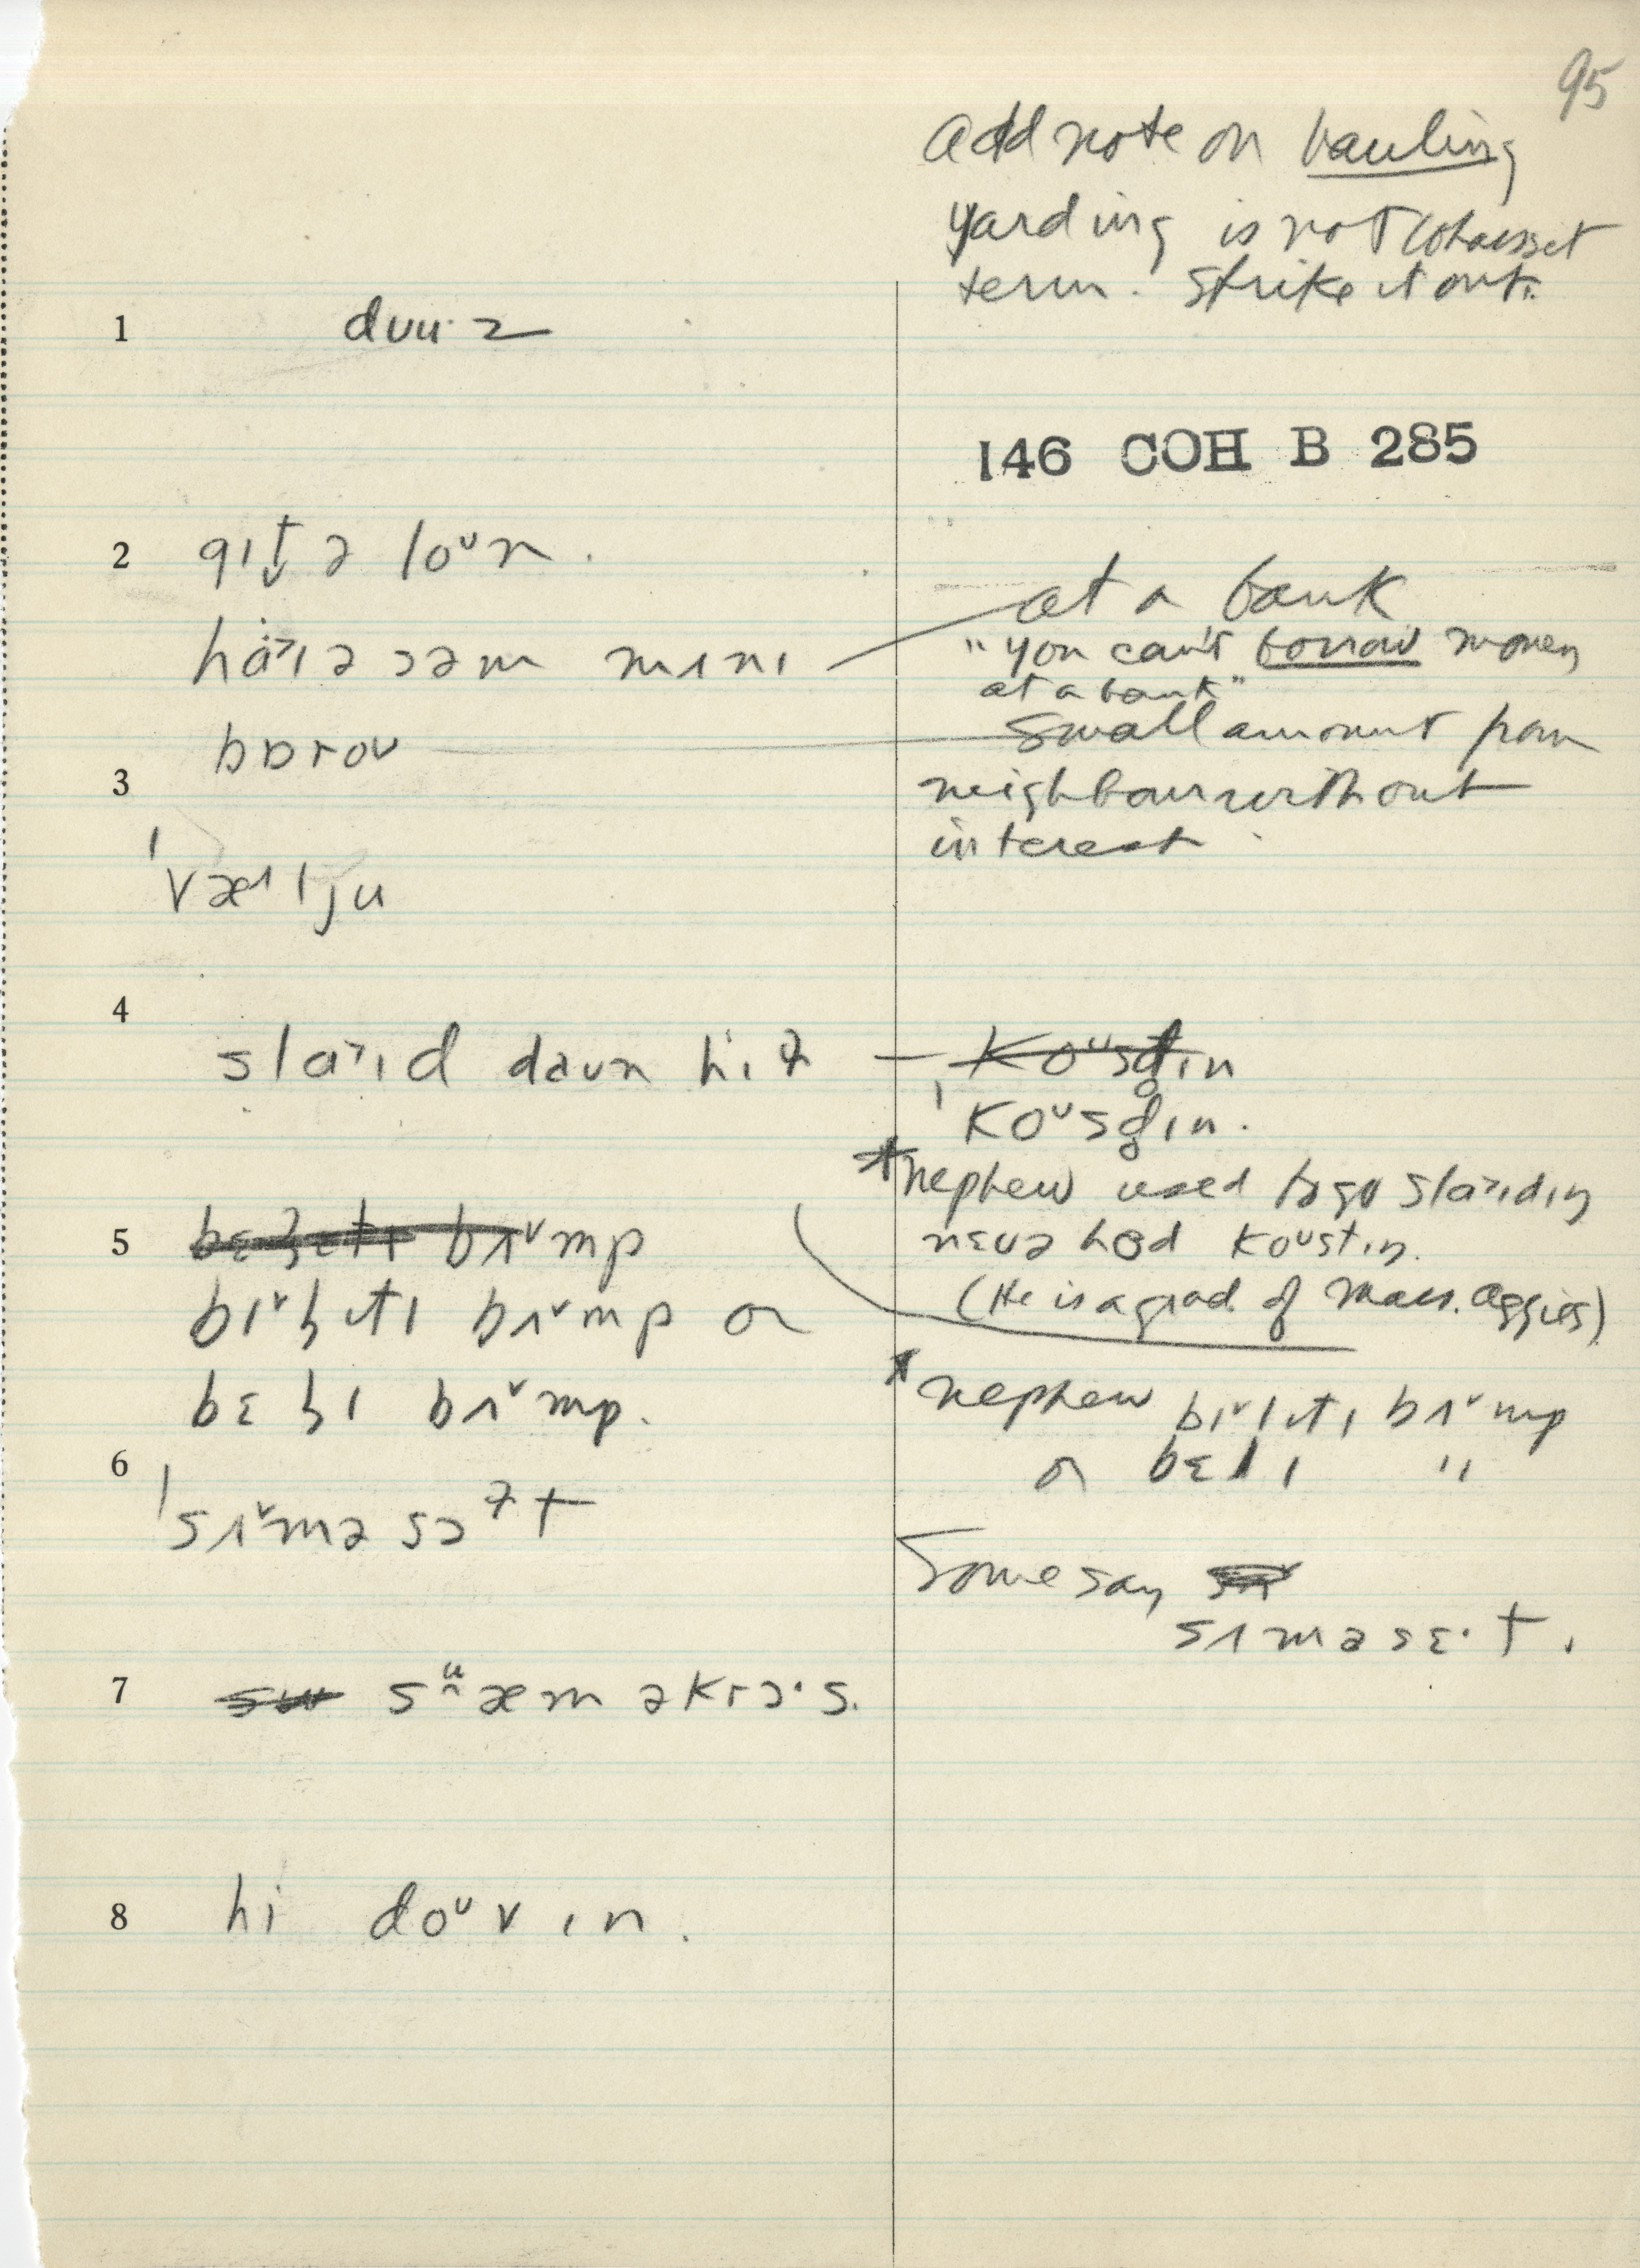 95
Add note on hauling
yarding is not Cohasset
term. Strike it out.
1 dɪuˑz
146 COH B 285
2 gɪt̬ ə loᵘn.
haˑ˃ɪə səm mʌnɪ — at a bank
"you can't borrow money
at a bank"
bɒroʊ — small amount from
3 neighbour without
interest
ˈvæˑljʊ
4
slaˑ˃ɪd daʊn hɪɫ — koᵘsdɪn
ˈkoᵘsd̥ɪn.
*nephew used to go slaˑ˃ɪdɪŋ
nɛvə had koᵘstɪŋ.
(He is a grad. of Mass. Aggies)
5 bʌ˅mp
bɪ˅ɫɪtɪ bʌ˅mp or
bɛɫɪ bʌ˅mp.
*nephew bɪ˅lɪtɪ bʌ˅mp
or bɛlɪ "
6
ˈsʌ˅məsɔᵊt
Some say
sʌməsɛˑt.
7 sʷæm əkrɔˑs.
8 hi doᵘvɪn.